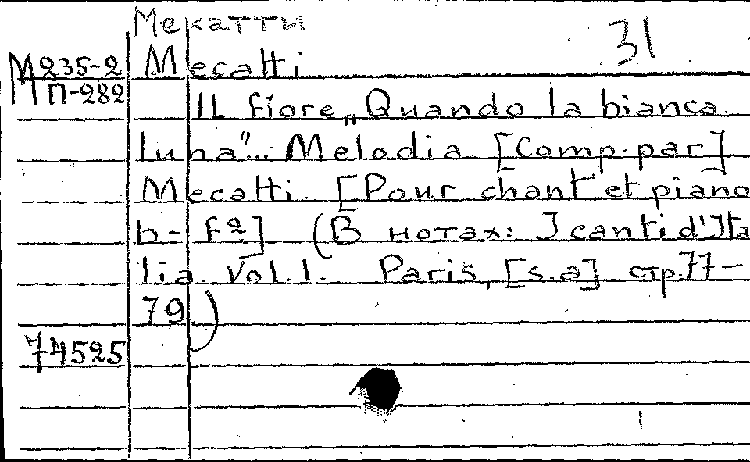 Мекатти
31
М235-2 Mecatti
МП-282 Il fiore „Quando la bianca
luna"... Melodia [Comp. par]
Mecatti. [Pour chant et piano
h- f²] (В нотах: I canti d'Ita
lia. Vol. 1. Paris, [s.a] стр. 77-
79)
74525